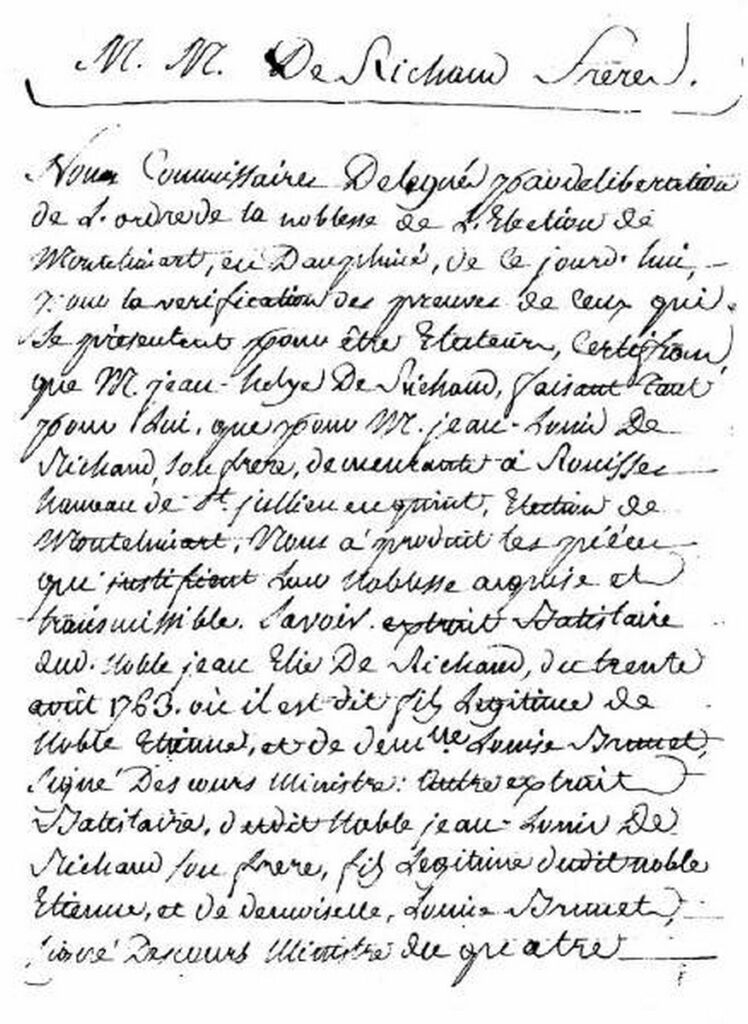 M. M. De Richaud Freres.
Nous Commissaires Delegués par deliberation
de L'ordre de la noblesse de L'Election de
Montelimart, en Dauphiné, de ce jourd'hui,
pour la verification des preuves de ceux qui
se presentent pour être Electeurs, Certifions
que M. jean-helye De Richaud, faisant tant
pour Lui, que pour M. jean-Louis De
Richaud, son frere, demeurants à
hameau de St. jullien en quint, Election de
Montelimart, Nous a produit les piéces
qui justifient Leur Noblesse acquise et
transmissible. Savoir. extrait Batistaire
dud. Noble jean Elie De Richaud, du trente
août 1763. où il est dit fils Legitime de
Noble Etienne, et de demlle Louise Brunet,
signé Descours Ministre: Autre extrait
Batistaire, dudit Noble jean-Louis De
Richaud son frere, fils Legitime dudit noble
Etienne, et de demoiselle, Louise Brunet,
signé Descours Ministre du quatre